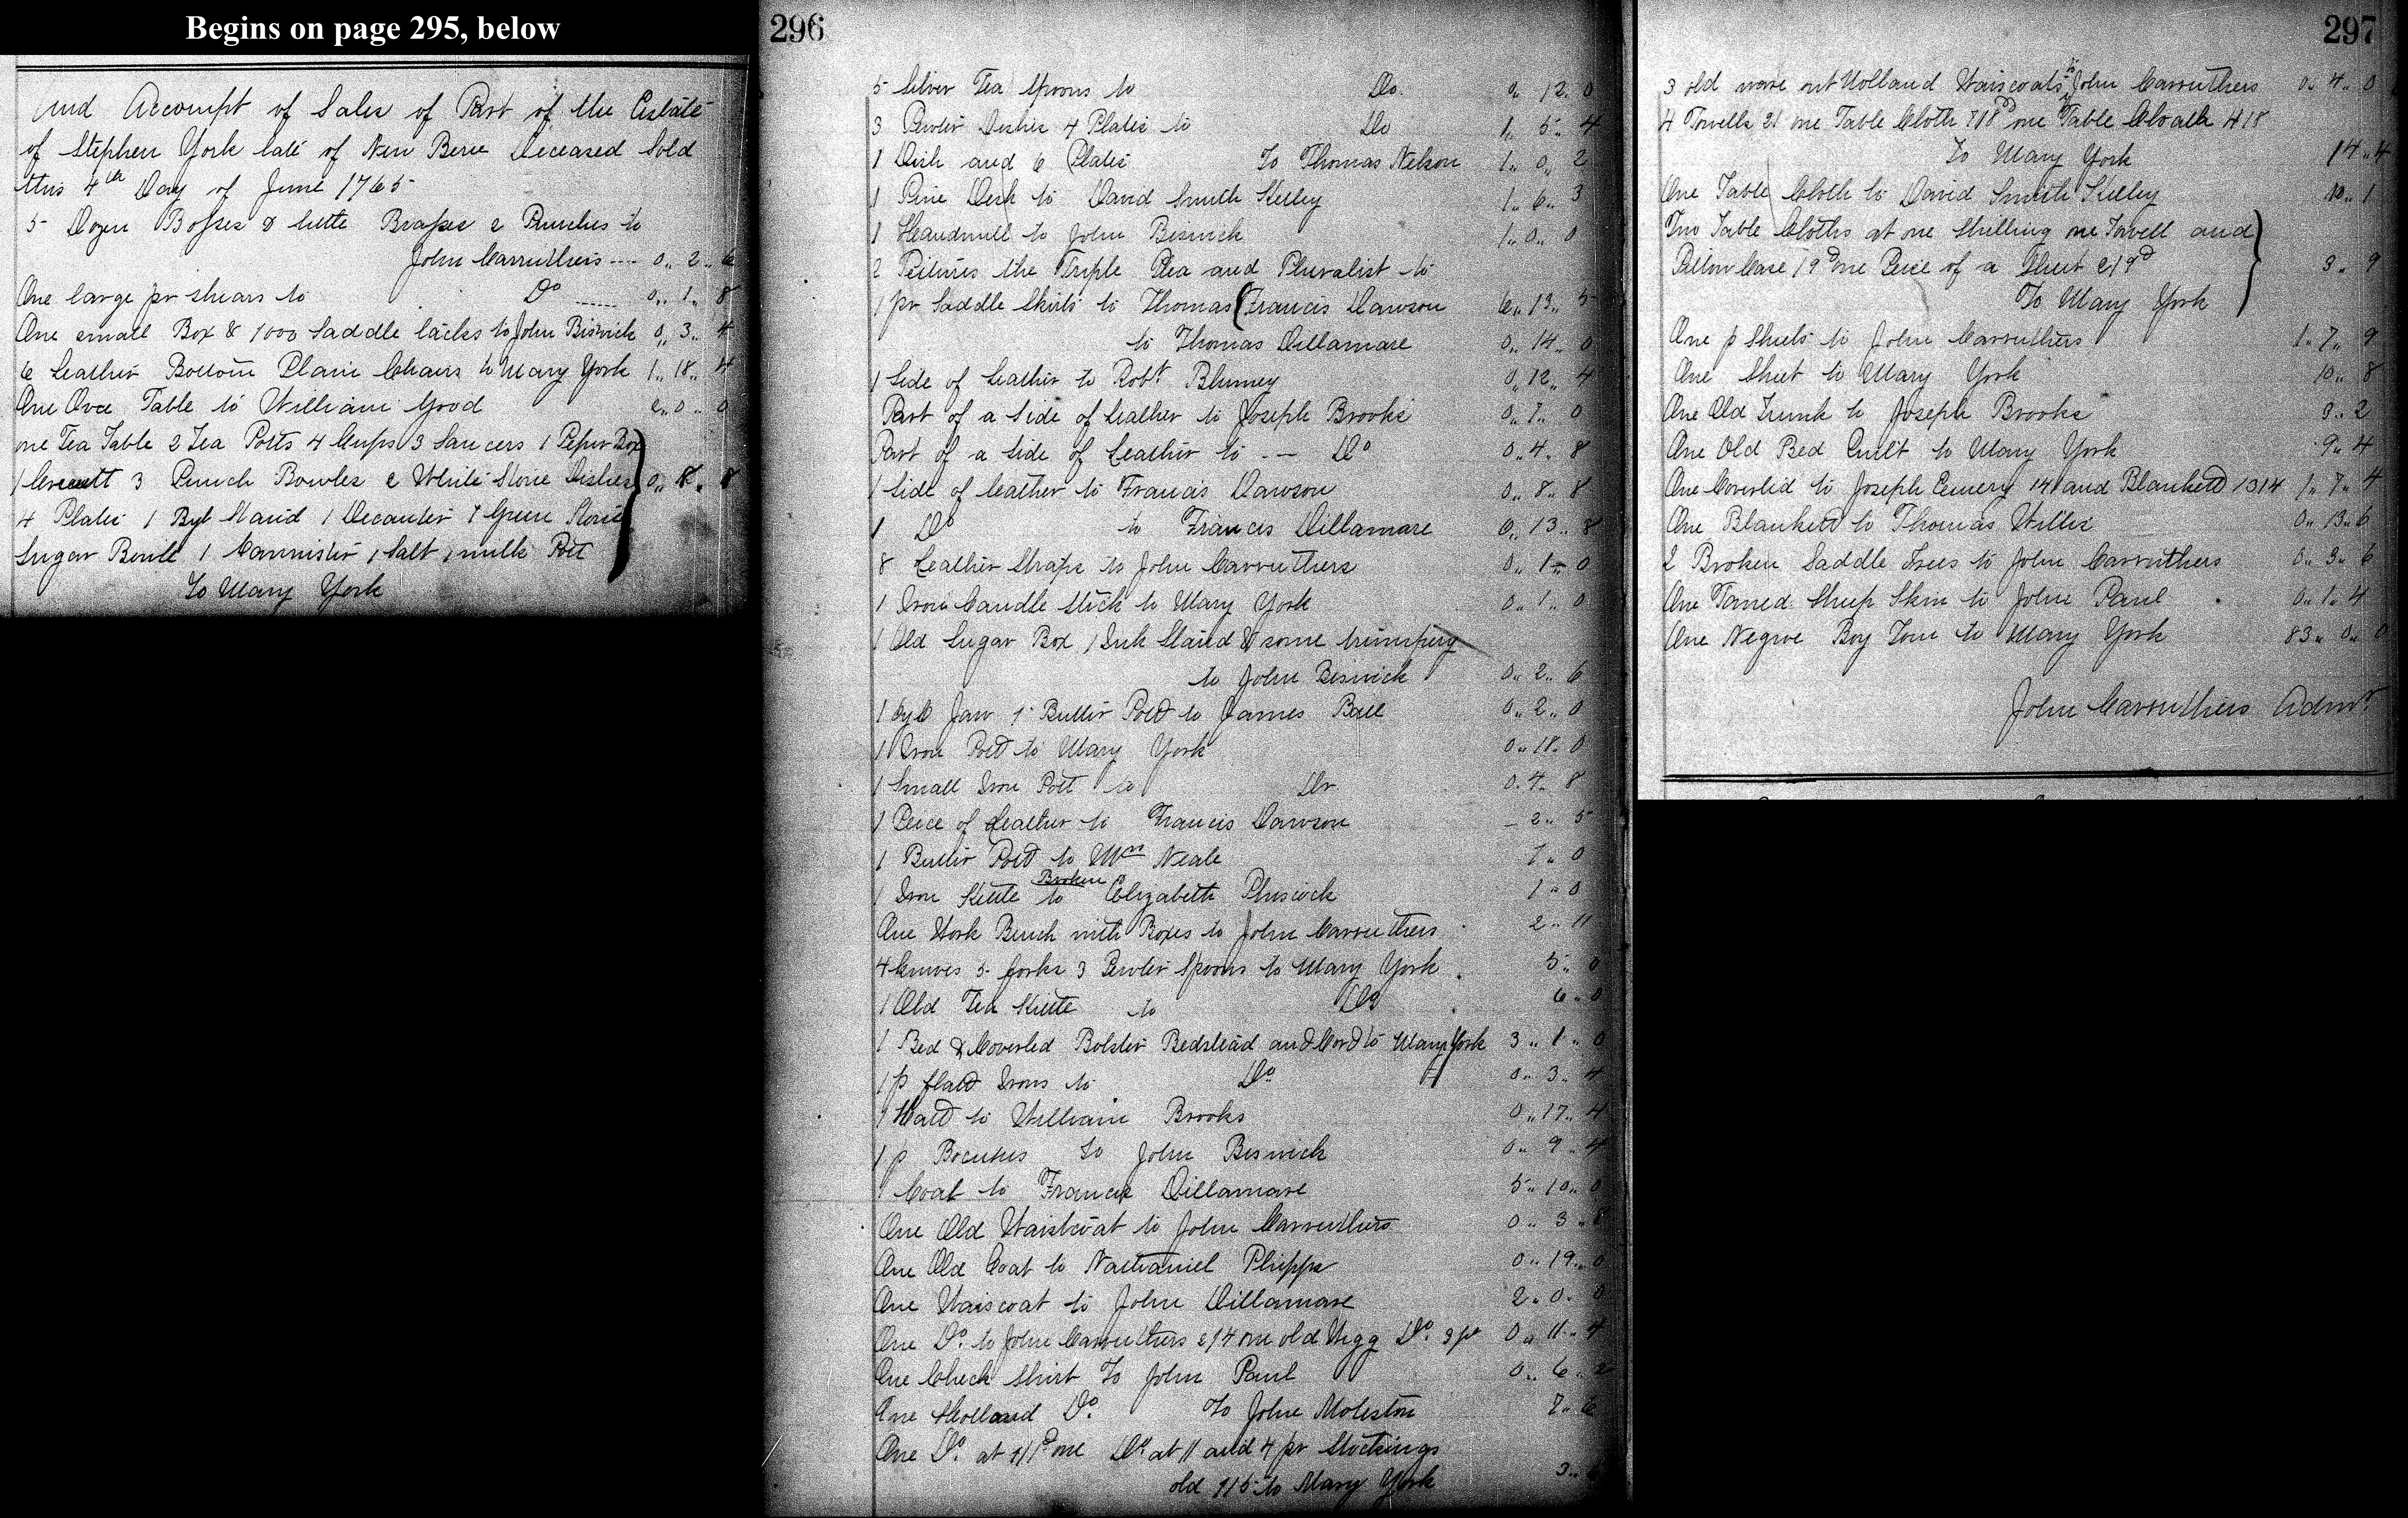 Begins on page 295, below
And Accompt of Sales of Part of the Estate
of Stephen York late of New Bern Deceased Sold
this 4th Day of June 1765
5 Dozen Bosses & little Brasses 2 Punches to
John Carruthers ---- 0,, 2,, 6
One large pr shears to Do ...... 0,, 1,, 8
One small Box & 1000 Saddle tacks to John Biswick 0,, 3,, 4
6 Leather Bottom Plain Chairs to Mary York 1,, 18,, 4
One Table to William Good 2,, 0,, 0
one Tea Table 2 Tea Potts 4 Cups 3 Saucers 1 Peper Box
1 Cruett 3 Punch Bowles 2 White Stone Dishes 0,, 8,, 8
4 Plates 1 Stand 1 Decanter 1 Green Stone
Sugar Bowle 1 Cannister 1 Salt 1 milk Pott
To Mary York
296
5 Silver Tea Spoons to Do. 0,, 12,, 0
3 Pewter Dishes 4 Plates to Do 1,, 5,, 4
1 Dish and 6 Plates To Thomas Nelson 1,, 0,, 2
1 Pine Desk to David Smith Kelley 1,, 6,, 3
1 Handmill to John Beswick 1,, 0,, 0
2 Pictures the Triple Plea and Pluralist to
1 pr Saddle Skirts to Thomas (Francis Dawson 6,, 13,, 5
to Thomas Dillamare 0,, 14,, 0
1 Side of Leather to Robt Blumey 0,, 12,, 4
Part of a Side of Leather to Joseph Brooks 0,, 7,, 0
Part of a Side of Leather to -- Do 0,, 4,, 8
1 Side of Leather to Francis Dawson 0,, 8,, 8
1 Do to Francis Dillamare 0,, 13,, 8
8 Leather Straps to John Carruthers 0,, 1,, 0
1 Iron Candle Stick to Mary York 0,, 1,, 0
1 Old Sugar Box 1 Ink Stand & some trumpery
to John Beswick 0,, 2,, 6
1 Jarr 1 Butter Pott to James Ball 0,, 2,, 0
1 Iron Pott to Mary York 0,, 18,, 0
1 Small Iron Pott to Do 0,, 4,, 8
1 Peice of Leather to Francis Dawson - 2,, 5
1 Butter Pott to Wm Neale 7,, 0
1 Iron Kittle Broken to Elizabeth 1,, 0
One Work Bench with Boxes to John Carruthers 2,, 11
4 knives 5 forks 3 Pewter Spoons to Mary York 5,, 0
1 Old Tea Kittle to Do 6,, 0
1 Bed & Coverled Bolster Bedstead and Cord to Mary York 3,, 1,, 0
1 p flatt Irons to Do 0,, 3,, 4
1 Hatt to William Brooks 0,, 17,, 4
1 p to John Beswick 0,, 9,, 4
1 Coat to Francis Dillamare 5,, 10,, 0
One Old Waistcoat to John Carruthers 0,, 3,, 8
One Old Coat to Nathaniel Phipps 0,, 19,, 0
One Waiscoat to John Dillamare 2,, 0,, 0
One Do. to John Carruthers 2/4 one old Wigg Do. 9 0,, 11,, 4
One Check Shirt To John Paul 0,, 6,, 2
One Holland Do. To John Moleston 7,, 6
One Do. at 1/1 one Do. at 11 and 4 pr Stockings
old 1/5 to Mary York 3,,
297
3 old wore out Holland Waiscoats to John Carruthers 0,, 4,, 0
4 Towells 21 one Table Cloth 7/8 one Table Cloath 4/8
To Mary York 14,, 4
One Table Cloth to David Smith Kelley 10,, 1
Two Table Cloths at one Shilling one Towell and
Pillow Case 19d one Peice of a Sheet 2/9d 3,, 9
To Mary York
One p Sheets to John Carruthers 1,, 7,, 9
One Sheet to Mary York 10,, 8
One Old Trunk to Joseph Brooks 9,, 2
One Old Bed Quilt to Mary York 9,, 4
One Coverlid to Joseph Emery 14/ and Blankett 13/4 1,, 7,, 4
One Blankett to Thomas Willis 0,, 13,, 6
2 Broken Saddle Trees to John Carruthers 0,, 3,, 6
One Taned Sheep Skin to John Paul 0,, 1,, 4
One Negroe Boy Tom to Mary York 83,, 0,, 0
John Carruthers Admr.